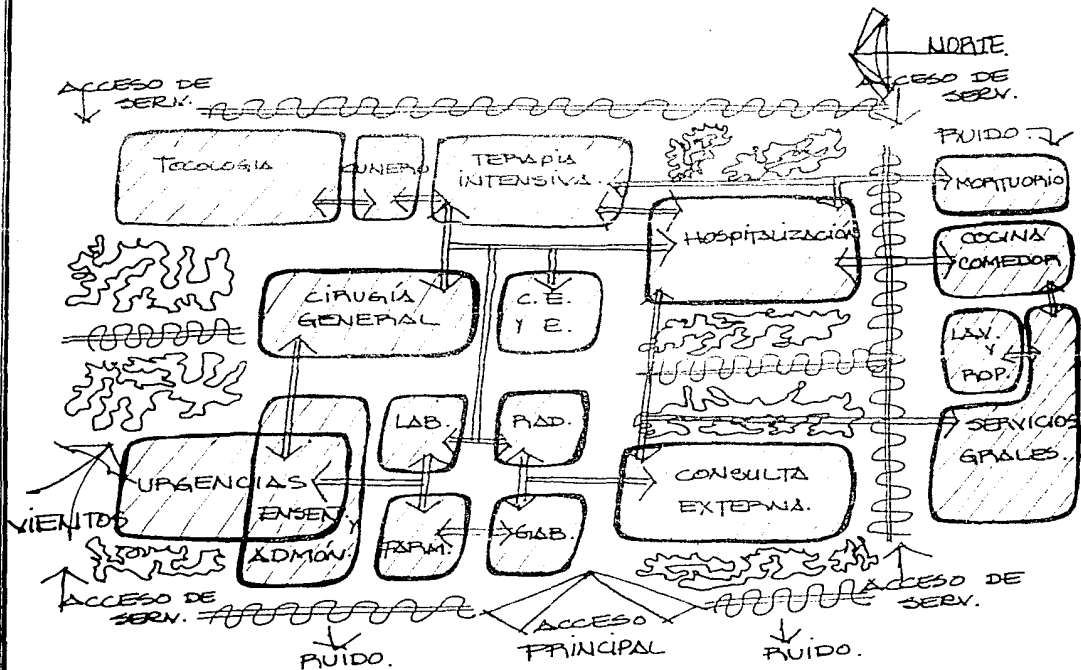 NORTE.
ACCESO DE
SERV.
ACCESO DE
SERV.
RUIDO.
TOCOLOGIA
CUNERO
TERAPIA
INTENSIVA.
MORTUORIO
HOSPITALIZACIÓN
COCINA
COMEDOR
CIRUGÍA
GENERAL
C. E.
Y E.
LAV.
Y
ROP.
LAB.
RAD.
SERVICIOS
GRALES.
URGENCIAS
CONSULTA
EXTERNA.
VIENTOS
ENSEÑ. Y
ADMÓN.
FARM.
GAB.
ACCESO DE
SERV.
ACCESO
PRINCIPAL
ACCESO DE
SERV.
RUIDO.
RUIDO.